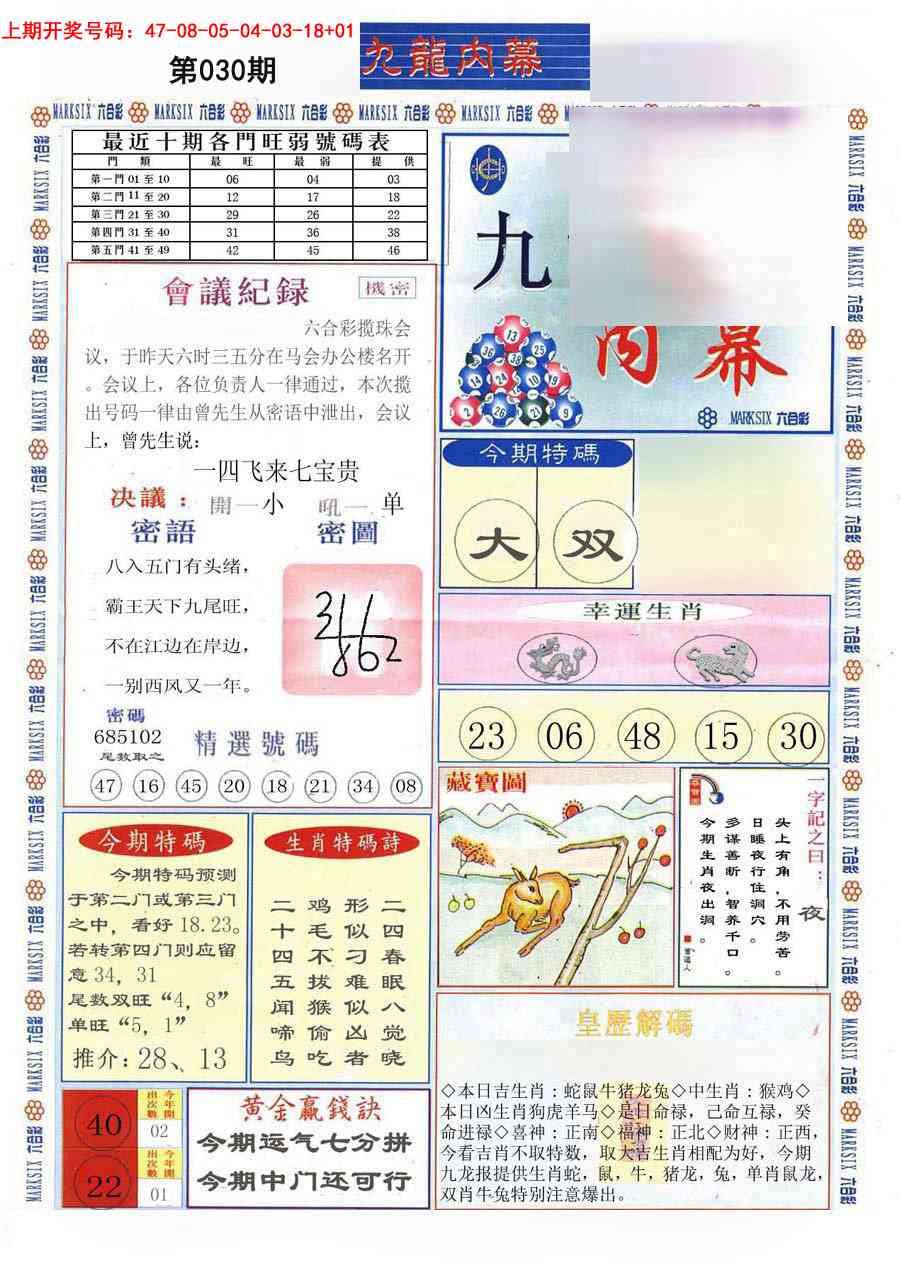 上期开奖号码：47-08-05-04-03-18+01
第030期
九龍内幕
MARKSIX 六合彩 MARKSIX 六合彩 MARKSIX 六合彩 MARKSIX 六合彩 MARKSIX 六合彩
最近十期各門旺弱號碼表
門 類 最 旺 最 弱 提 供
第一門 01 至 10 06 04 03
第二門 11 至 20 12 17 18
第三門 21 至 30 29 26 22
第四門 31 至 40 31 36 38
第五門 41 至 49 42 45 46
九
内幕
13
36 38 25
14 24 10 19
2 26 21 9
MARKSIX 六合彩
會議紀録
機密
六合彩揽珠会
议，于昨天六时三五分在马会办公楼名开
。会议上，各位负责人一律通过，本次揽
出号码一律由曾先生从密语中泄出，会议
上，曾先生说：
一四飞来七宝贵
决議：開一小 吼一单
密語
八入五门有头绪，
霸王天下九尾旺，
不在江边在岸边，
一别西风又一年。
密圖
密碼
685102
尾数取之
精選號碼
47 16 45 20 18 21 34 08
今期特碼
大 双
幸運生肖
23 06 48 15 30
藏寶圖
一字記之曰：
夜
头上有角，不用劳苦。
日睡夜行住洞穴。
多谋善断，智养千口。
今期生肖夜出洞。
今期特碼
今期特码预测
于第二门或第三门
之中，看好18.23。
若转第四门则应留
意34，31
尾数双旺“4，8”
单旺“5，1”
推介：28、13
生肖特碼詩
二四春眠八觉晓
形似刁难似凶者
鸡毛不拔猴偷吃
二十四五闻啼鸟
40
今年開出次數
02
22
今年開出次數
01
黄金赢錢訣
今期运气七分拼
今期中门还可行
皇歷解碼
◇本日吉生肖：蛇鼠牛猪龙兔◇中生肖：猴鸡◇
本日凶生肖狗虎羊马◇是日命禄，己命互禄，癸
命进禄◇喜神：正南◇福神：正北◇财神：正西，
今看吉肖不取特数，取大吉生肖相配为好，今期
九龙报提供生肖蛇，鼠，牛，猪龙，兔，单肖鼠龙，
双肖牛兔特别注意爆出。